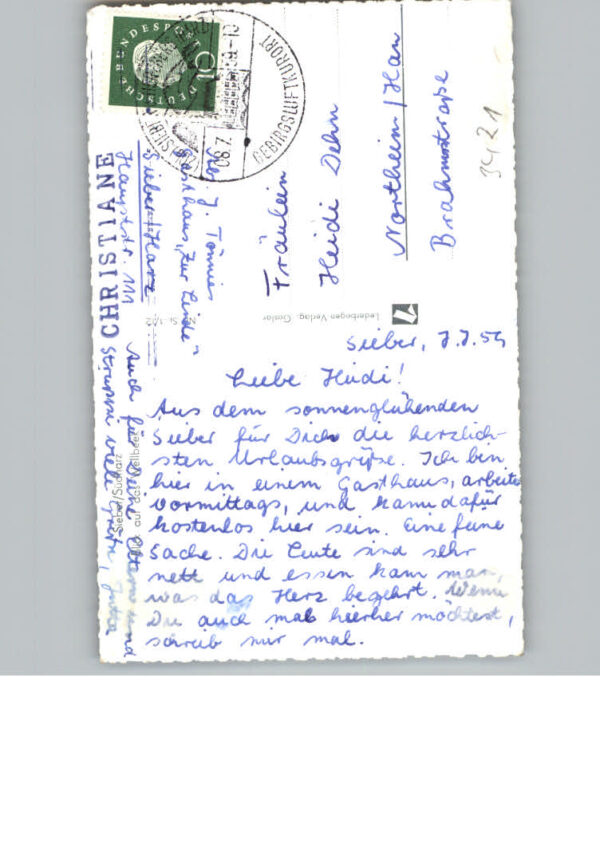 DEUTSCHE BUNDESPOST
10
GEBIRGSLUFTKURORT
3421
Fräulein
Heidi Dehn
Northeim/Han
Brahmstraße
Abs. J. Tönnies
Gasthaus „Zur Linde"
Sieber/Harz
Hauptstr. 111
CHRISTIANE
Lederbogen Verlag, Goslar
7
Sieber/Südharz
Sieber, 7.7.59
Liebe Heidi!
Aus dem sonnenglühenden
Sieber für Dich die herzlich-
sten Urlaubsgrüße. Ich bin
hier in einem Gasthaus, arbeite
vormittags, und kann dafür
kostenlos hier sein. Eine feine
Sache. Die Leute sind sehr
nett und essen kann man,
was das Herz begehrt. Wenn
Du auch mal hierher möchtest,
schreib mir mal.
Auch für Deine Eltern und
Struppi viele Grüße, Jutta